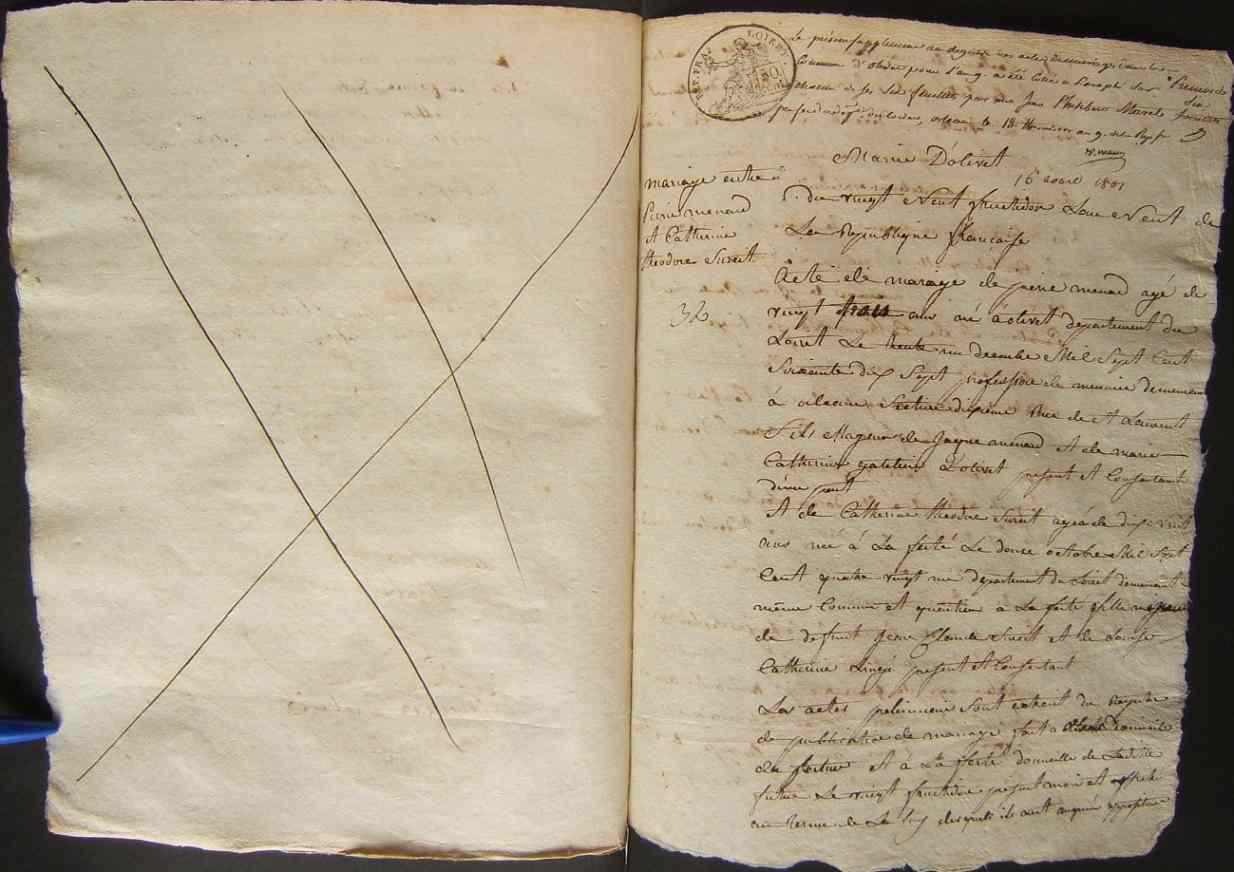 REP. FRA. LOIRET
50
Le présent supplement au registre des actes de mariage de la
Commune d'Olivet pour l'an 9 a été Cotté et Paraphé sur
chacun de ses six feuillets par nous Jean Philibert Marcels
Premier de
Six
feuillets
du Loiret, orleans le 18 an 9 de la Rep.
Mairie D'olivet
16 1801
mariage entre
Pierre menard
et Catherine
theodore Suroit
32
du vingt e neuf fructidor L'an e neuf de
La Republique française
Acte de mariage de pierre menard agé de
vingt trois ans né à olivet departement du
Loiret Le trente un decembre Mil Sept Cent
Soixante dix Sept profession de demeurant
à orleans Section dixieme Rue de St Laurent
Fils Majeur de Jaque menard et de marie
Catherine D'olivet présent et Consentant
d'une part
Et de Catherine theodore Suroit agée de dix neuf
ans née à La ferté Le douze octobre Mil Sept
Cent quatre vingt un departement du Loiret demeurant
même Commune et à La ferté fille
de defunt Claude Suroit et de Louise
Catherine présent et Consentant
Les actes preliminaire Sont extrait du Registre
de publication de mariage fait a olivet domicile
du futur et à La ferté domicille de Ladite
future Le vingt fructidor présent mois et affiché
au terme de La Loy desquels il aucune opposition